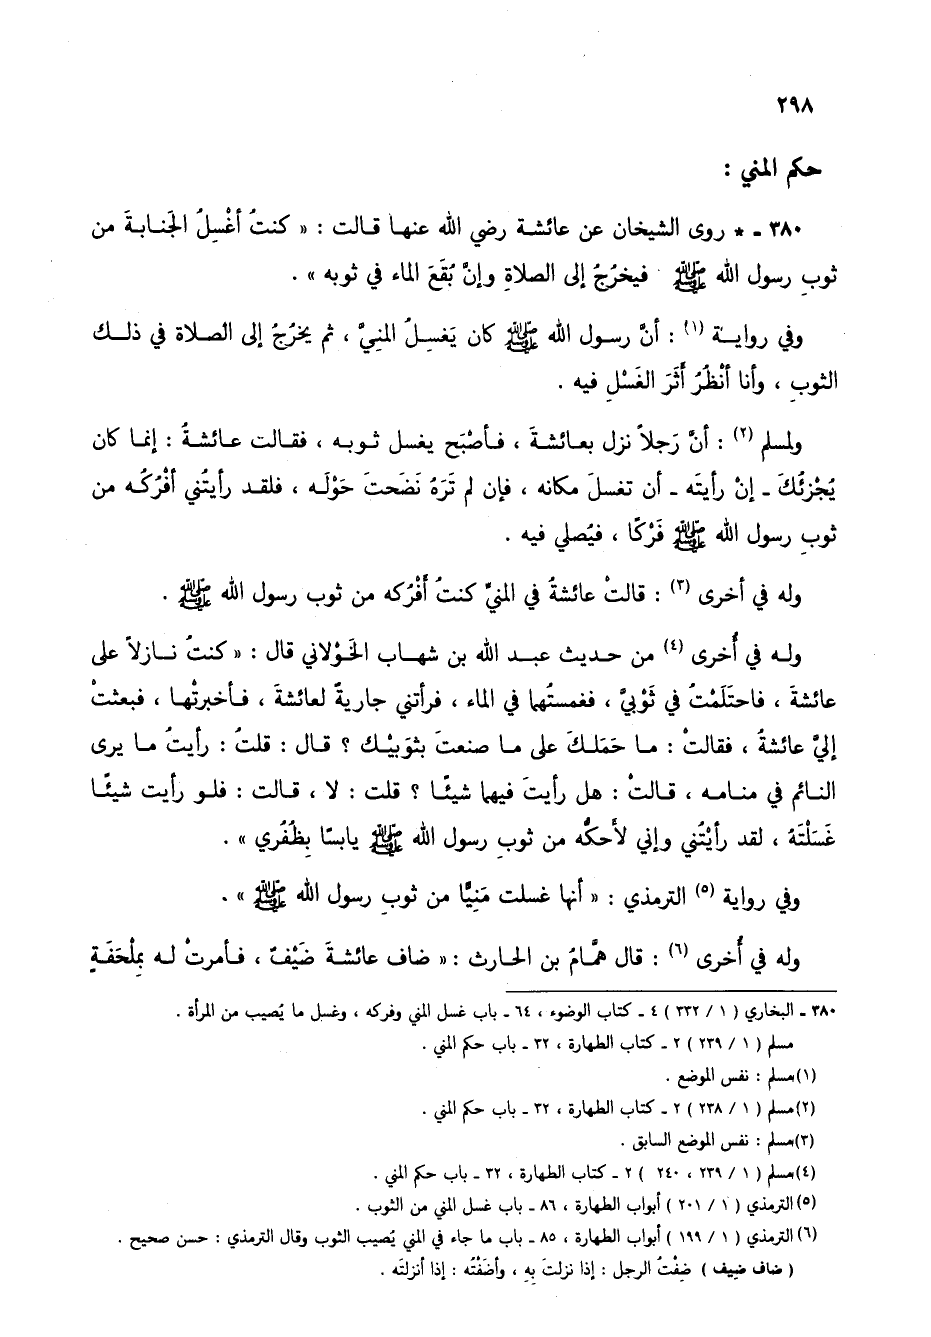 ٢٩٨
حكم المني :
٣٨٠ - * روى الشيخان عن عائشة رضي الله عنها قالت : « كنتُ أغْسِلُ الجَنابةَ من
ثوبِ رسول الله ﷺ فيخرُجُ إلى الصلاةِ وإنَّ بُقَعَ الماء في ثوبه » .
وفي رواية (١) : أنَّ رسول الله ﷺ كان يَغسِلُ المنِيَّ ، ثم يخرُجُ إلى الصلاة في ذلك
الثوبِ ، وأنا أنْظُرُ أَثَرَ الغَسْلِ فيه .
ولمسلم (٢) : أنَّ رَجلاً نزل بعائشةَ ، فأصْبَح يغسل ثوبه ، فقالت عائشةُ : إنما كان
يُجْزئُكَ - إنْ رأيتَه - أن تغسلَ مكانه ، فإن لم تَرَهُ نَضَحتَ حَوْلَه ، فلقد رأيتُني أفْرُكُه من
ثوبِ رسول الله ﷺ فَرْكًا ، فيُصلي فيه .
وله في أخرى (٣) : قالتْ عائشةُ في المنيِّ كنتُ أَفْرُكه من ثوب رسول الله ﷺ .
وله في أُخرى (٤) من حديث عبد الله بن شهاب الخَوْلاني قال : « كنتُ نازلاً على
عائشةَ ، فاحتَلَمْتُ في ثَوْبيَّ ، فغمستُها في الماء ، فرأتني جاريةٌ لعائشةَ ، فأخبرتْها ، فبعثتْ
إليَّ عائشةُ ، فقالتْ : ما حَمَلكَ على ما صنعتَ بثوبَيْك ؟ قال : قلتُ : رأيتُ ما يرى
النائم في منامه ، قالتْ : هل رأيتَ فيها شيئًا ؟ قلت : لا ، قالت : فلو رأيت شيئًا
غَسَلْتَهُ ، لقد رأيْتُني وإني لأَحكُّه من ثوبِ رسول الله ﷺ يابسًا بِظُفُري » .
وفي رواية (٥) الترمذي : « أنها غسلت مَنِيًّا من ثوبِ رسول الله ﷺ » .
وله في أُخرى (٦) : قال همَّامُ بن الحارث : « ضاف عائشةَ ضَيْفٌ ، فأمرتْ له بِمْلحَفَةٍ
٣٨٠ - البخاري ( ١ / ٣٣٢ ) ٤ - كتاب الوضوء ، ٦٤ - باب غسل المني وفركه ، وغسل ما يُصيب من المرأة .
مسلم ( ١ / ٢٣٩ ) ٢ - كتاب الطهارة ، ٣٢ - باب حكم المني .
(١) مسلم : نفس الموضع .
(٢) مسلم ( ١ / ٢٣٨ ) ٢ - كتاب الطهارة ، ٣٢ - باب حكم المني .
(٣) مسلم : نفس الموضع السابق .
(٤) مسلم ( ١ / ٢٣٩ ، ٢٤٠ ) ٢ - كتاب الطهارة ، ٣٢ - باب حكم المني .
(٥) الترمذي ( ١ / ٢٠١ ) أبواب الطهارة ، ٨٦ - باب غسل المني من الثوب .
(٦) الترمذي ( ١ / ١٩٩ ) أبواب الطهارة ، ٨٥ - باب ما جاء في المني يُصيب الثوب وقال الترمذي : حسن صحيح .
( ضاف ضيف ) ضِفْتُ الرجل : إذا نزلتَ بِه ، وأضَفْتُه : إذا أنزلتَه .